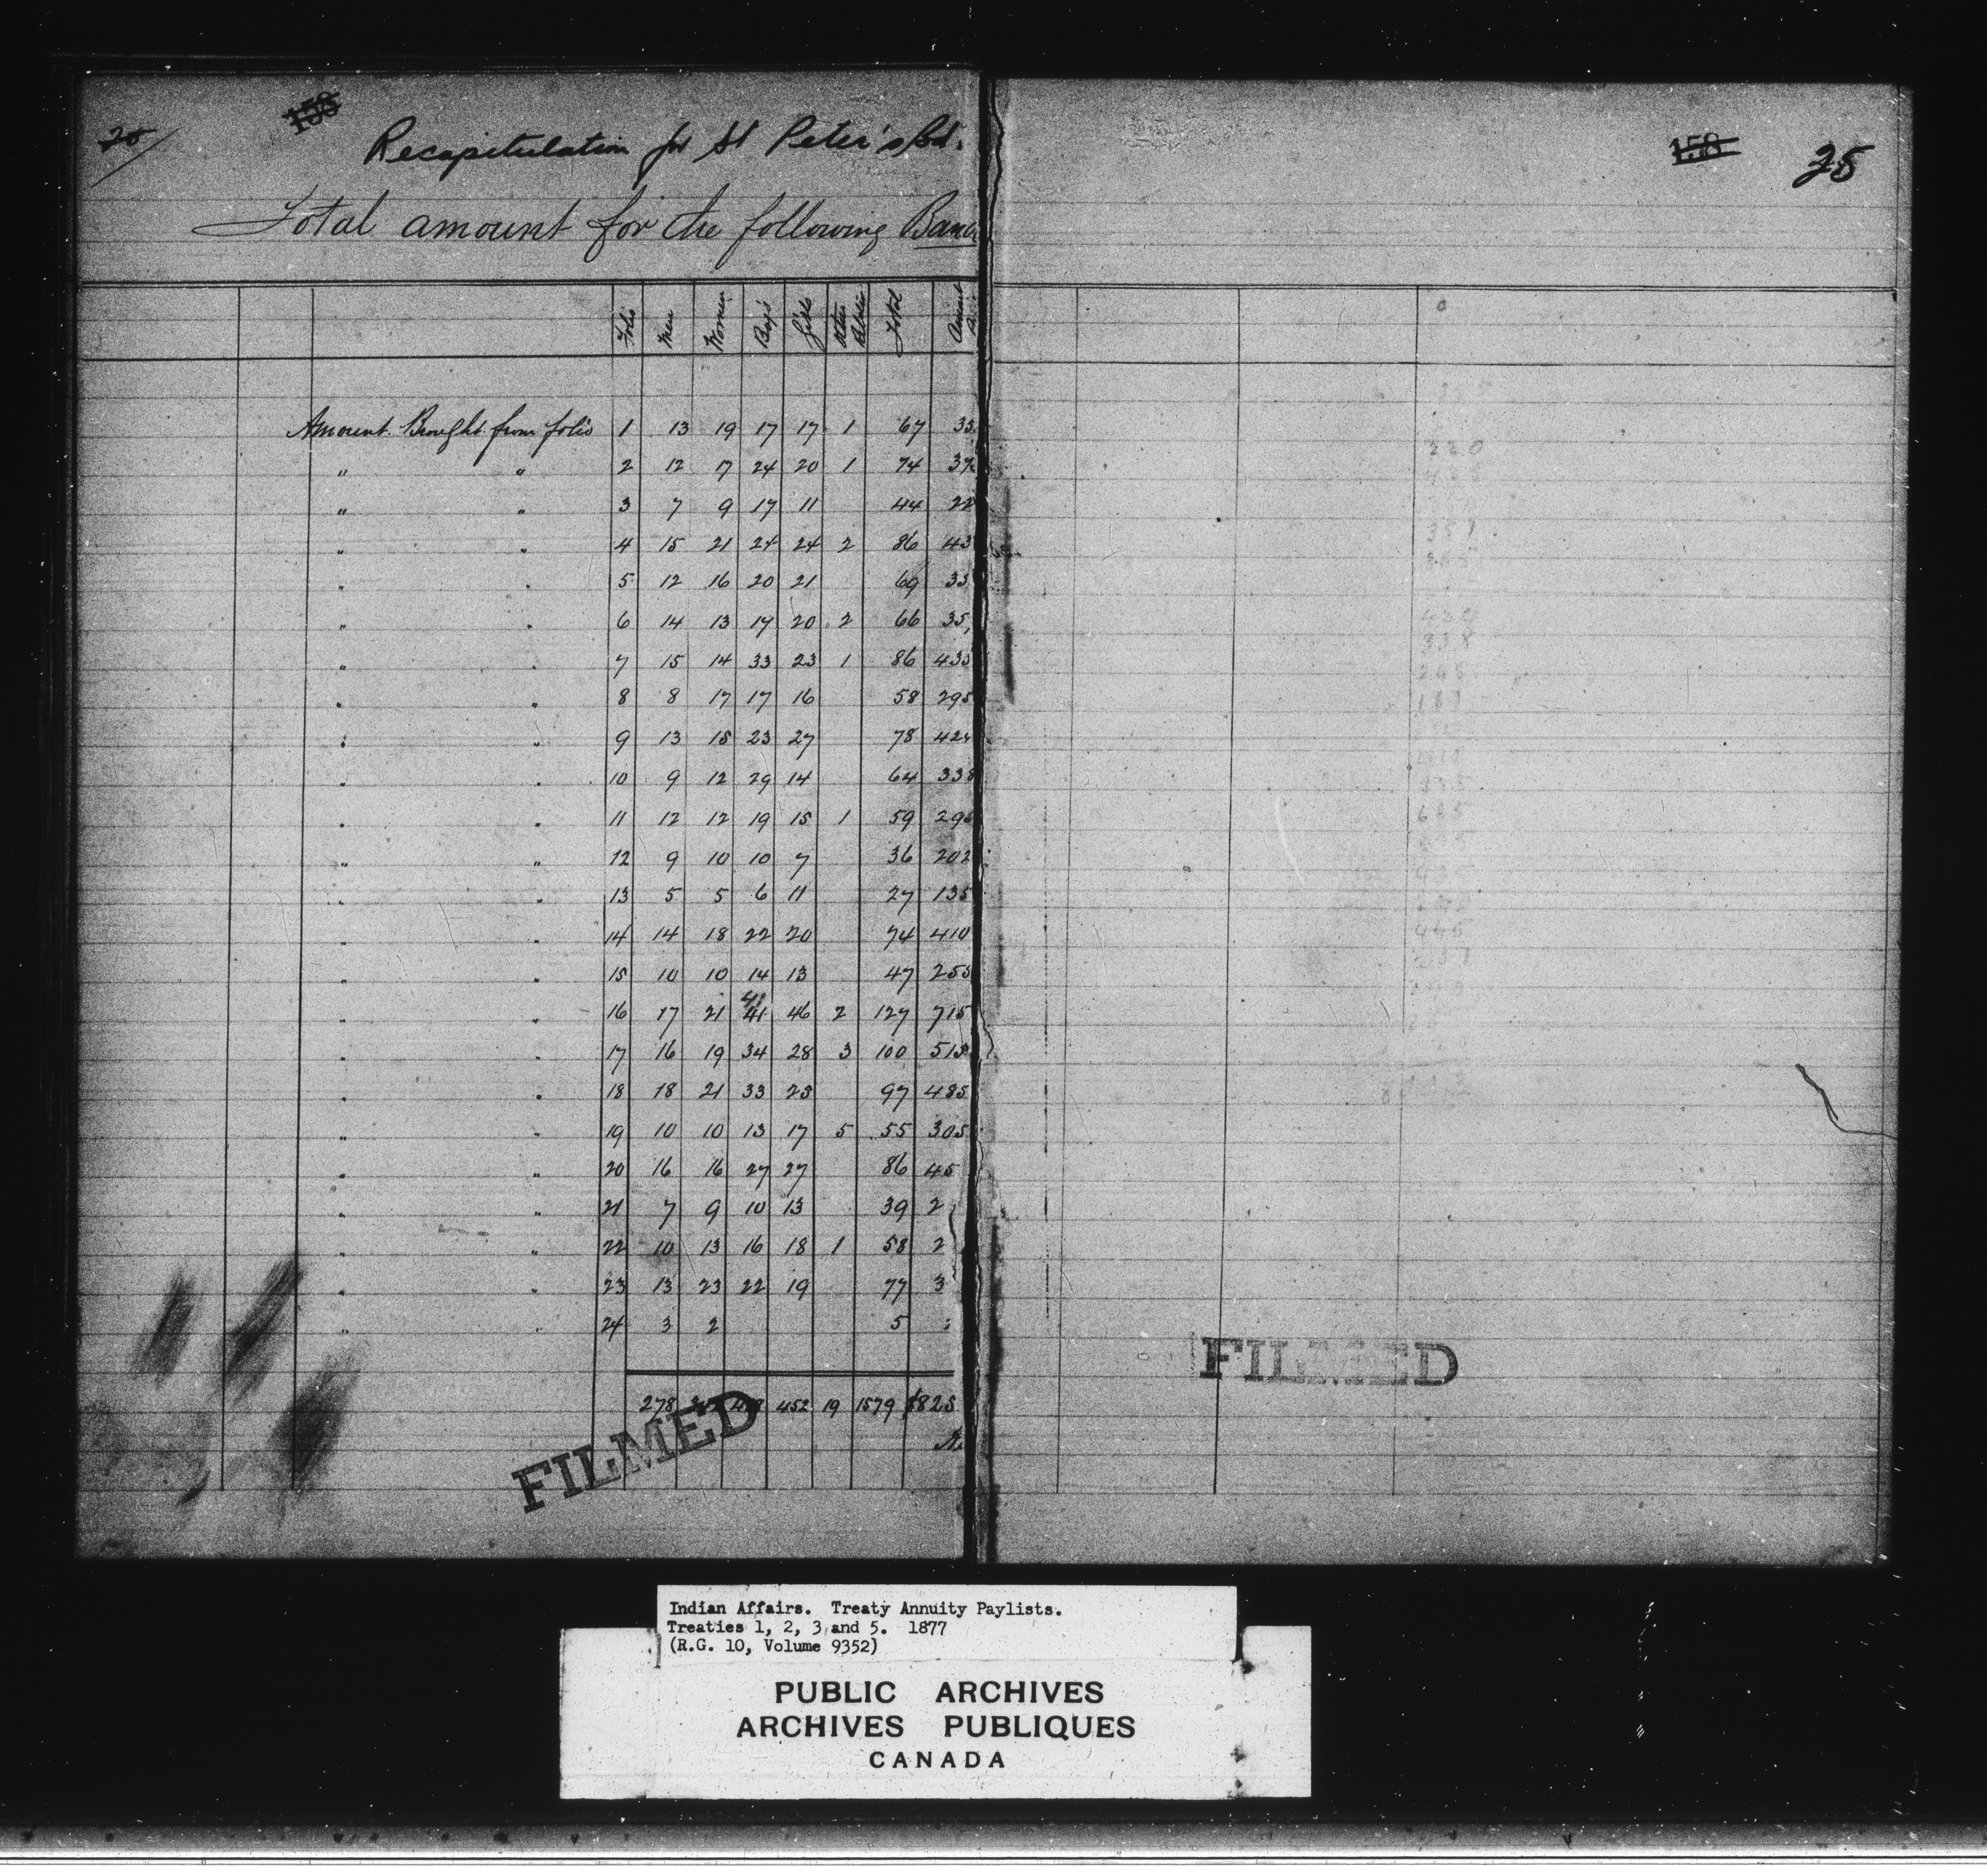 25
158
Recapitulation for St Peter's Bd.
Total amount for the following Band
Folio Men Women Boys Girls Other Relatives Total Amount
Amount Brought from folio 1 13 19 17 17 1 67 33
" " 2 12 17 24 20 1 74 37
" " 3 7 9 17 11 44 22
" " 4 15 21 24 24 2 86 43
" " 5 12 16 20 21 69 35
" " 6 14 13 17 20 2 66 35
" " 7 15 14 33 23 1 86 435
" " 8 8 17 17 16 58 295
" " 9 13 15 23 27 78 424
" " 10 9 12 29 14 64 338
" " 11 12 12 19 15 1 59 295
" " 12 9 10 10 7 36 202
" " 13 5 5 6 11 27 135
" " 14 14 18 22 20 74 410
" " 15 10 10 14 13 47 255
41
" " 16 17 21 41 46 2 127 715
" " 17 16 19 34 28 3 100 515
" " 18 18 21 33 25 97 485
" " 19 10 10 13 17 5 55 305
" " 20 16 16 27 27 86 45
" " 21 7 9 10 13 39 2
" " 22 10 13 16 18 1 58 2
" " 23 13 23 22 19 77 3
" " 24 3 2 5
278 452 19 1579 $825
FILMED
158
25
FILMED
Indian Affairs. Treaty Annuity Paylists.
Treaties 1, 2, 3 and 5. 1877
(R.G. 10, Volume 9352)
PUBLIC ARCHIVES
ARCHIVES PUBLIQUES
CANADA